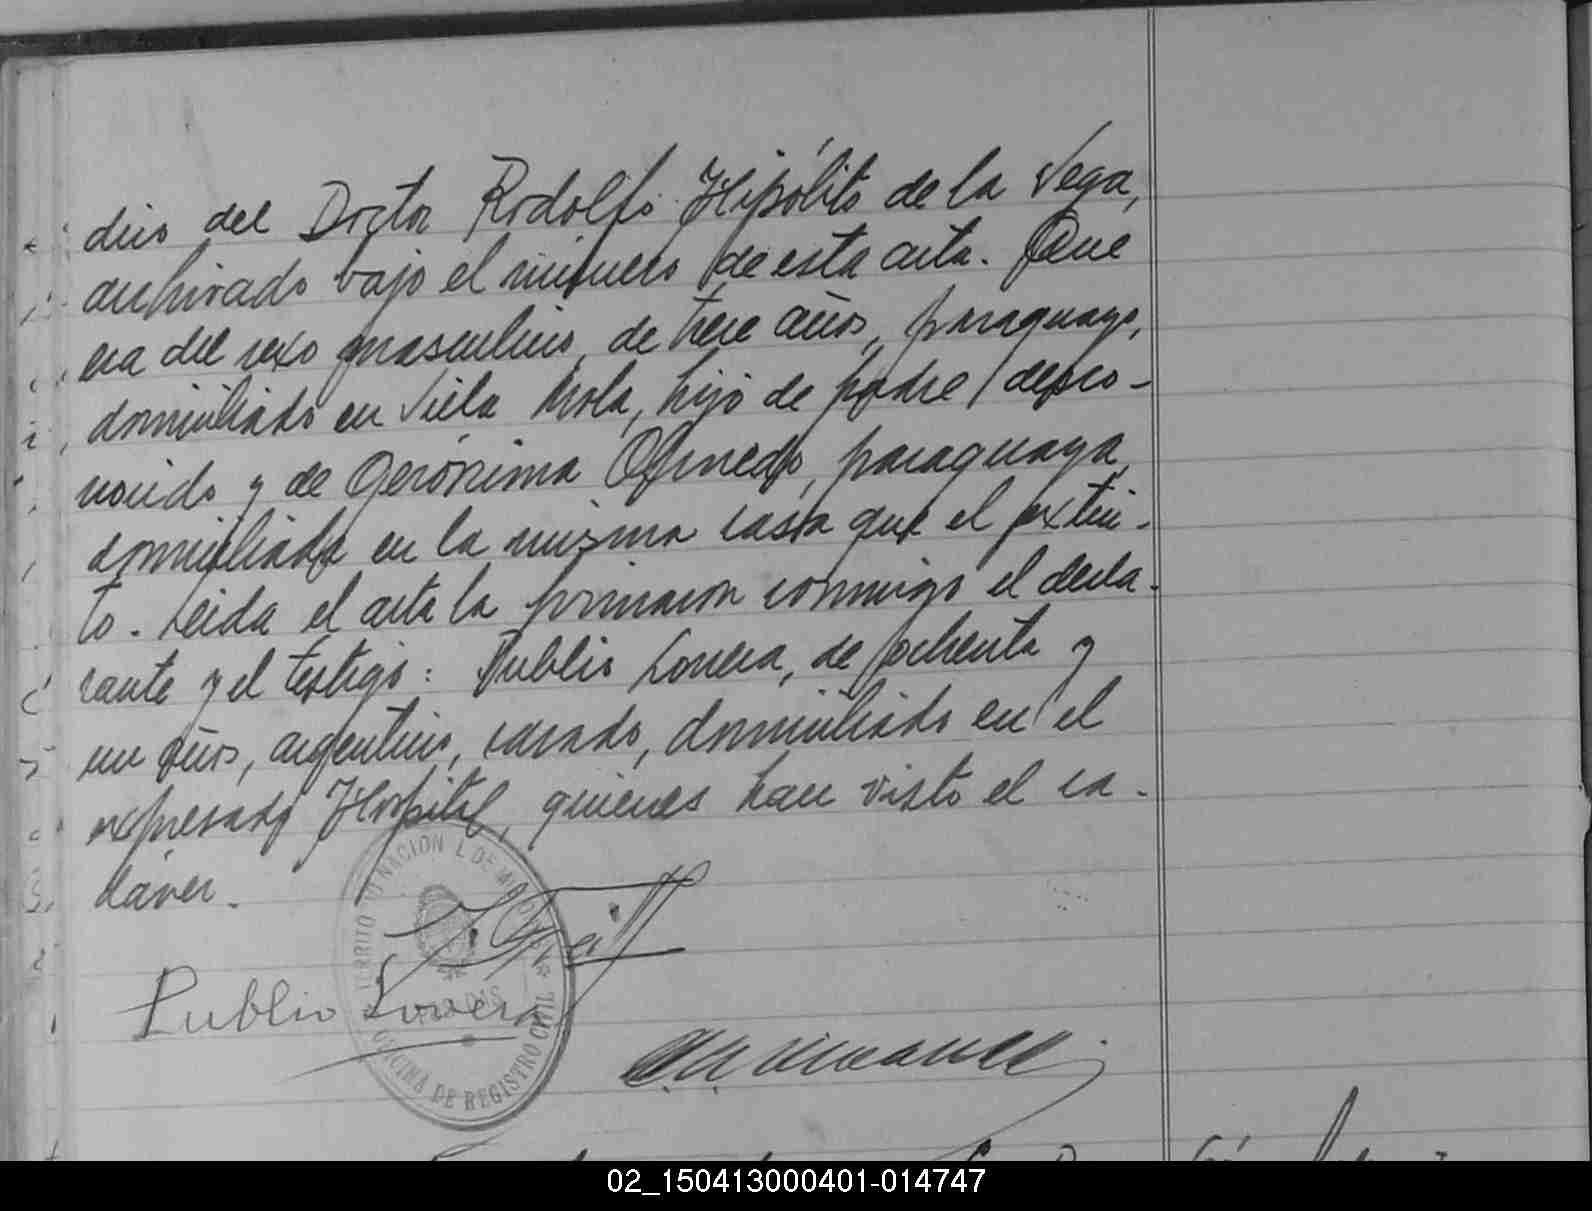 dico del Doctor Rodolfo Hipólito de la Vega,
archivado bajo el número de esta acta. Que
era del sexo masculino, de trece años, paraguayo,
domiciliado en Villa Mola, hijo de padre desco-
nocido y de Gerónima Olmedo, paraguaya,
domiciliada en la misma casa que el extin-
to. Leida el acta la firmaron conmigo el decla-
rante y el testigo: Publio Lovera, de ochenta y
un años, argentino, casado, domiciliado en el
expresado Hospital, quienes han visto el ca-
dáver.
Publio Lovera
TERRITORIO NACIONAL DE MISIONES
OFICINA DE REGISTRO CIVIL
02_150413000401-014747